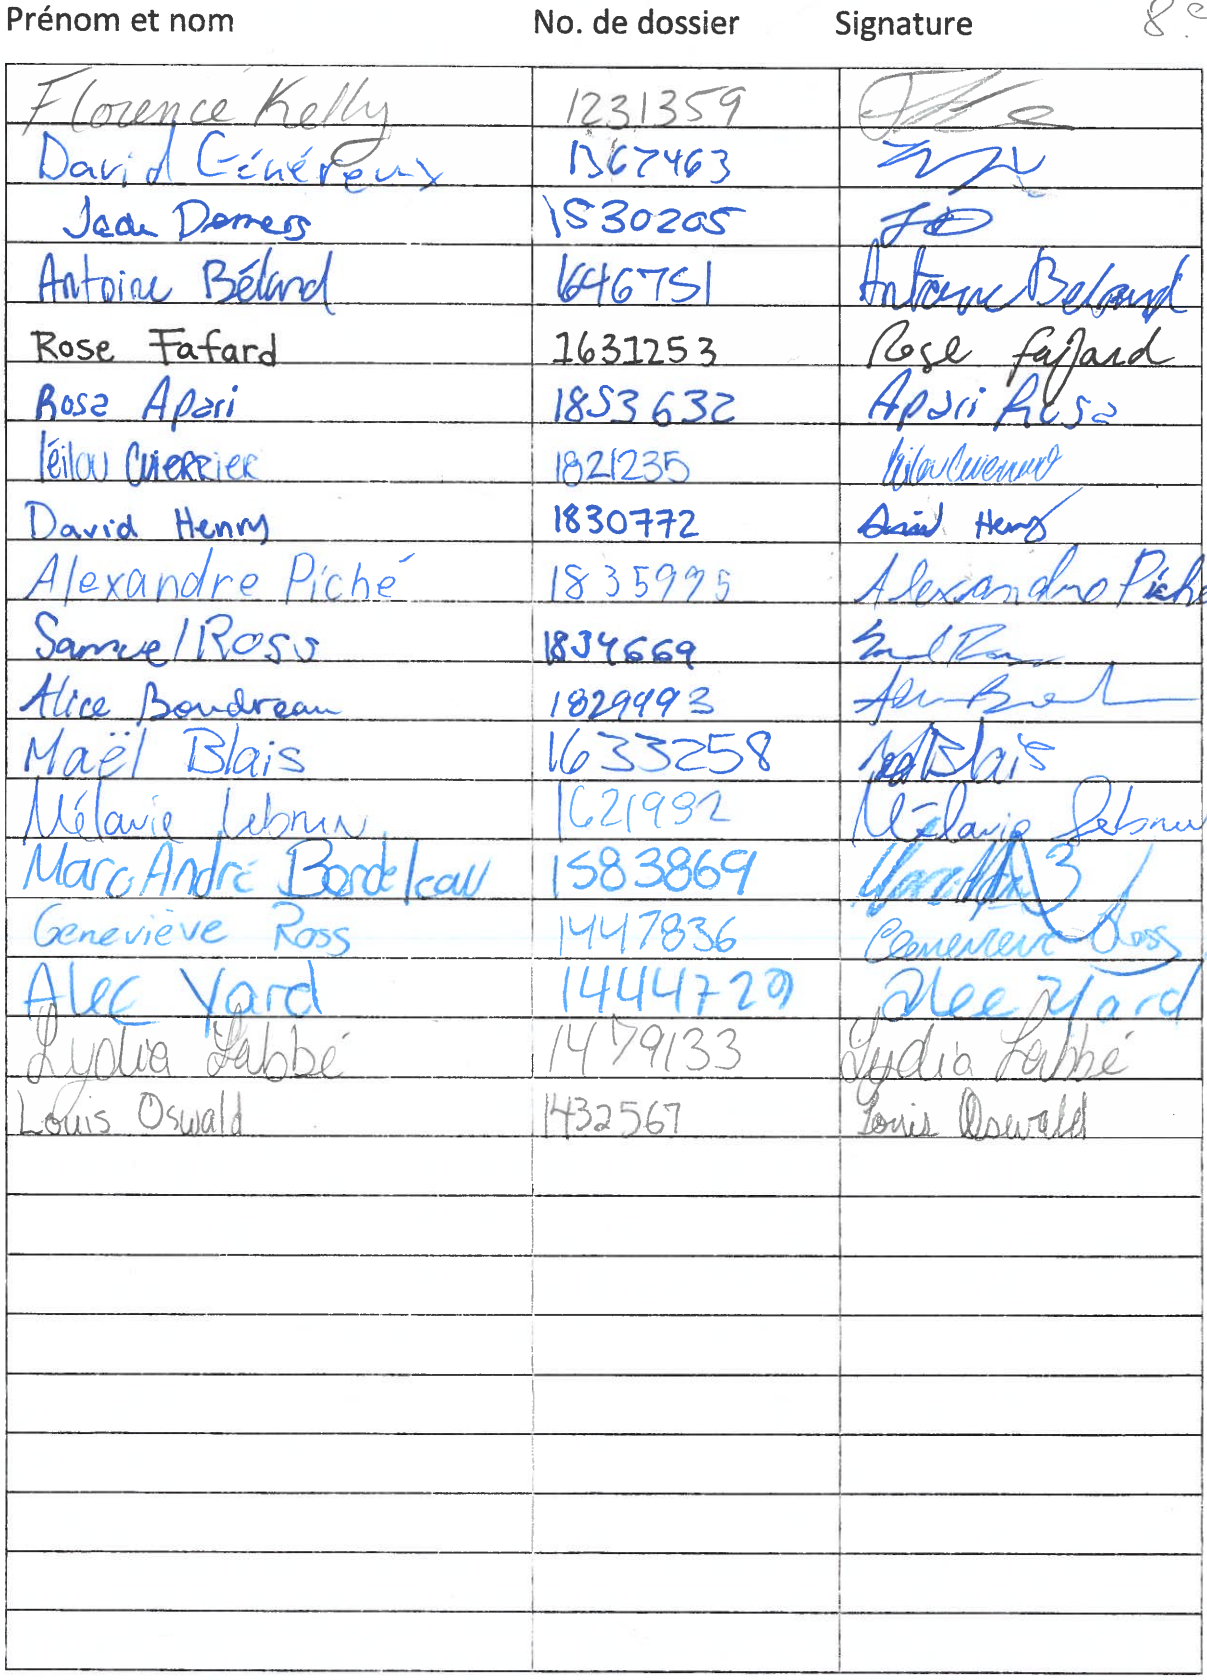 Prénom et nom No. de dossier Signature 8.e
Florence Kelly 1231359
David Généreux 1367463
Jade Demers 1530205 JD
Antoine Béland 1646751 Antoine Beland
Rose Fafard 1631253 Rose Fafard
Rosa Apari 1853632 Apari Rosa
léilou CUIERRIER 1821235
David Henry 1830772 David Henry
Alexandre Piché 1835995 Alexandre Piché
Samuel Ross 1834669
Alice Boudreau 1829493
Maël Blais 1633258 Blais
Mélanie Lebrun 1621992 Mélanie Lebrun
Marc-André Bordeleau 1583869
Geneviève Ross 1447836 Geneviève Ross
Alec Yard 1444729 Alec Yard
Lydia Labbé 1479133 Lydia Labbé
Louis Oswald 1432567 Louis Oswald